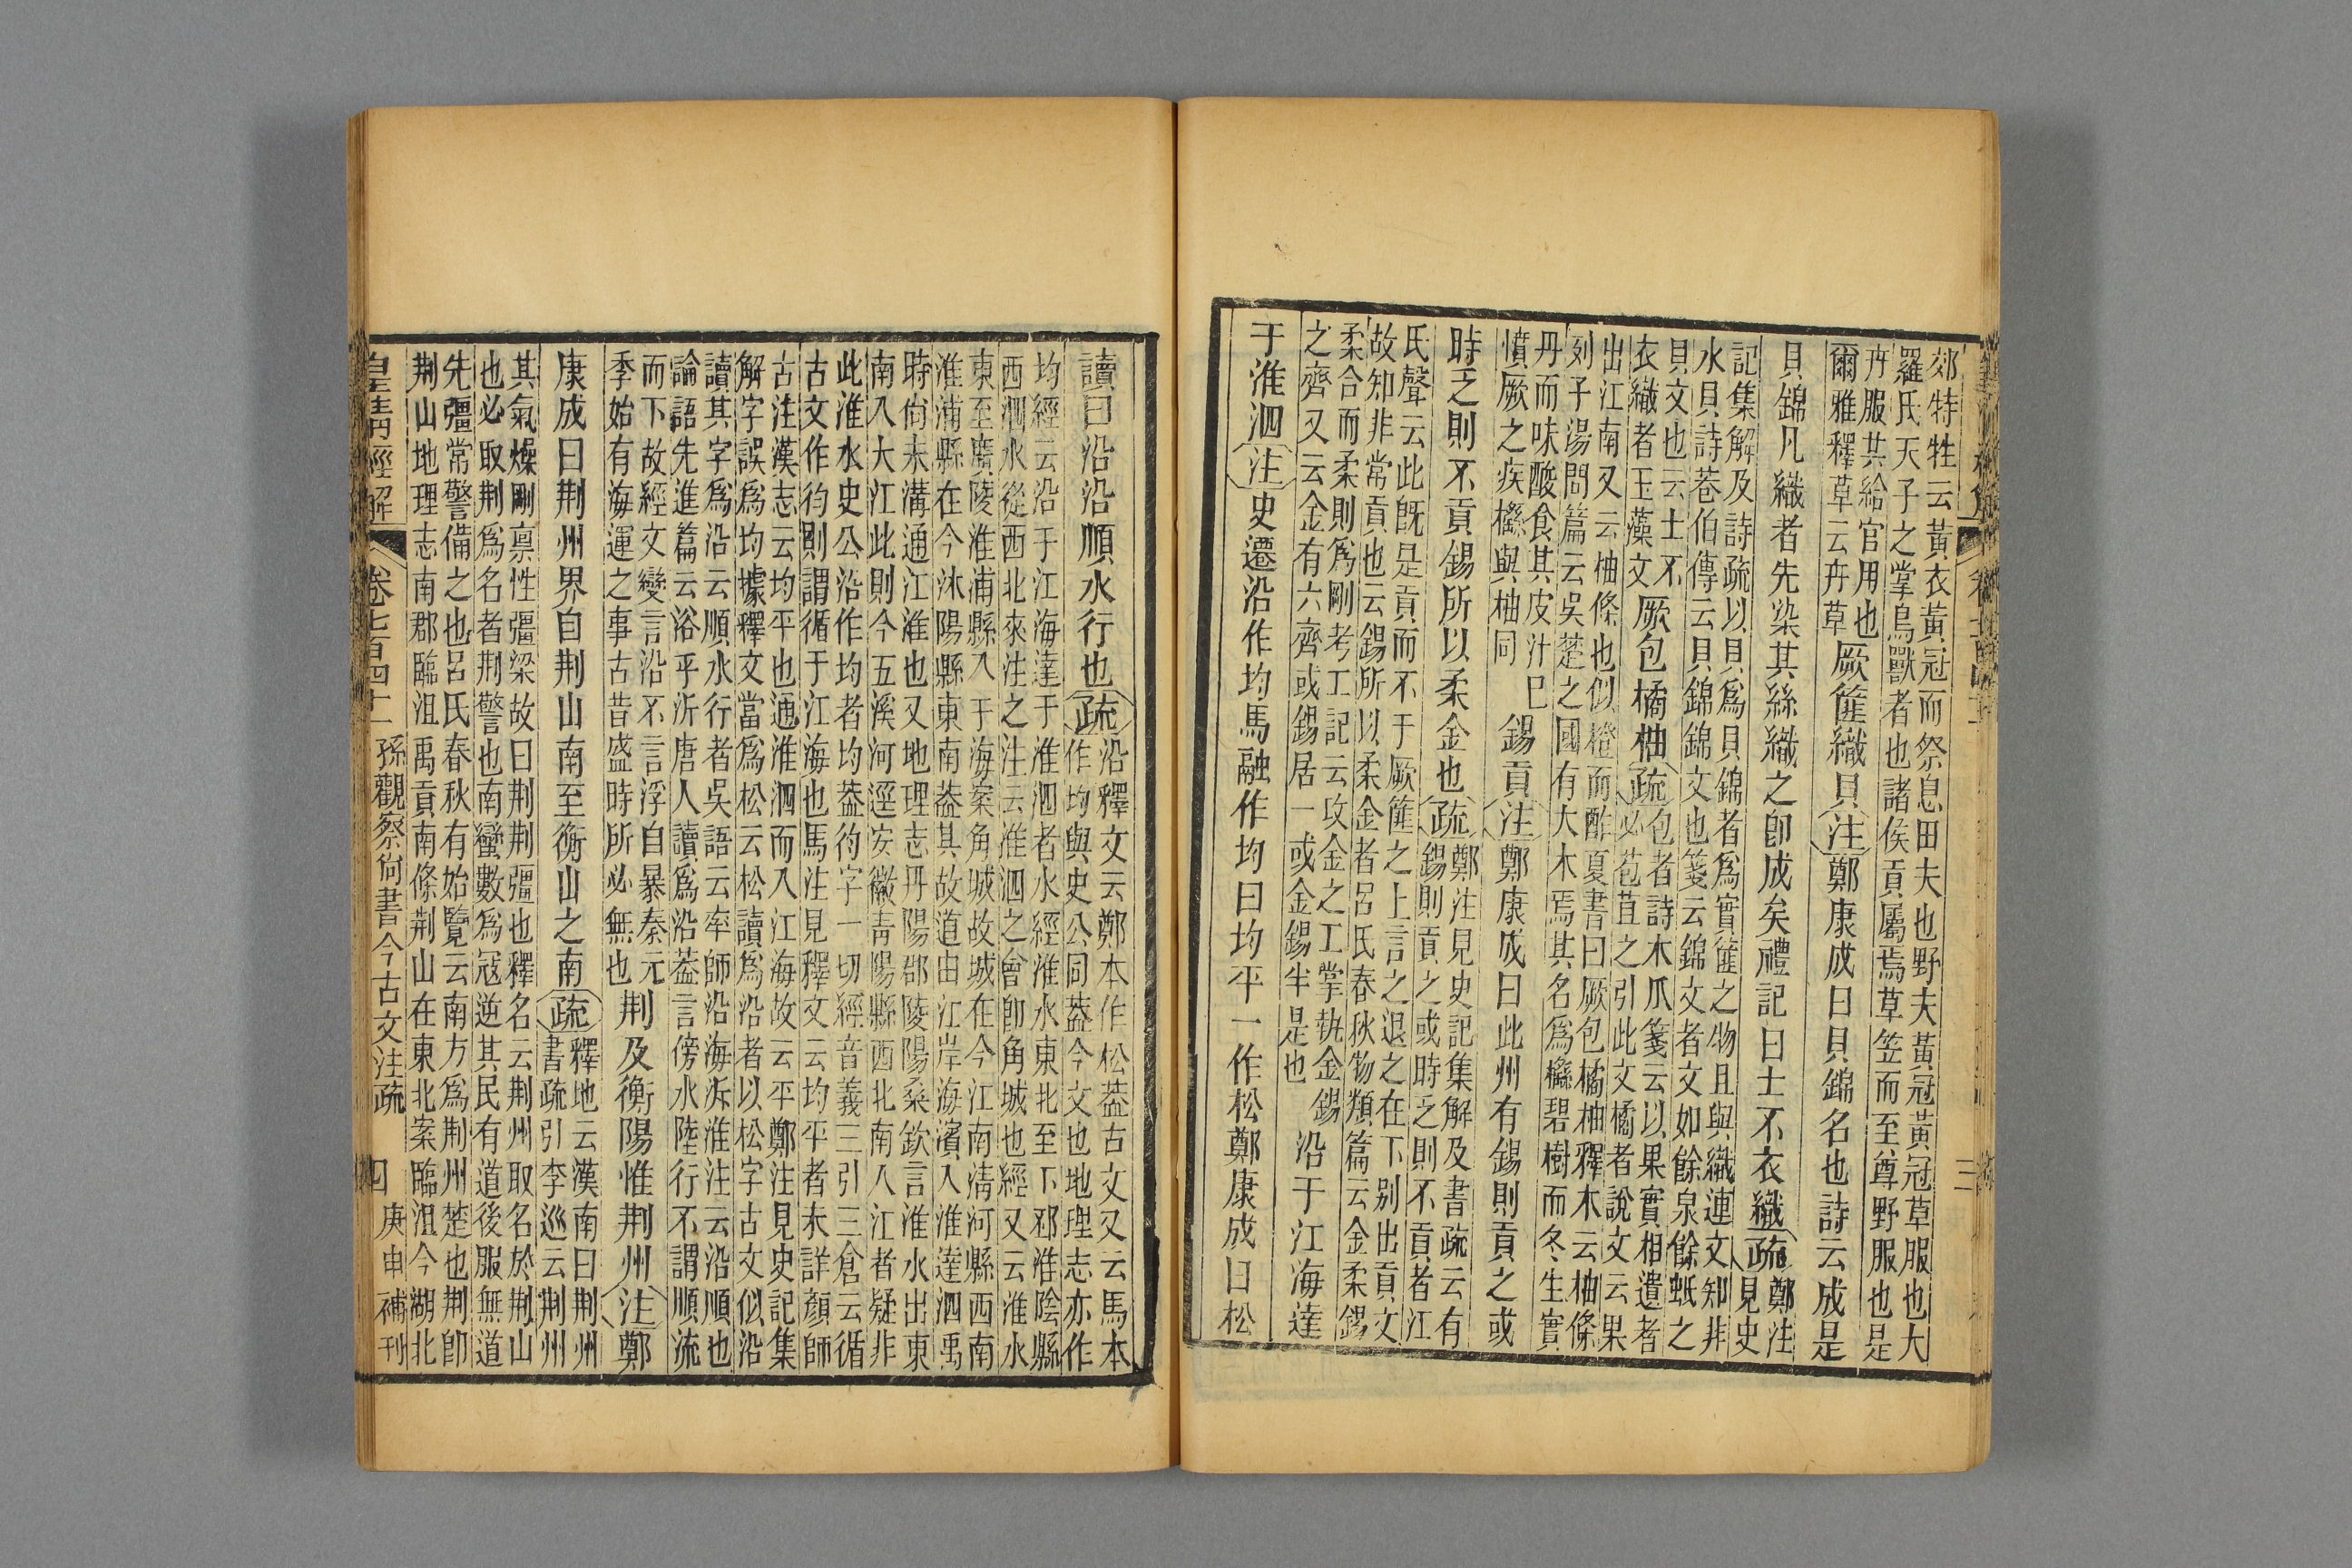 郊特牲云黃衣黃冠而祭息田夫也野夫黃冠黃冠草服也大
羅氏天子之掌鳥獸者也諸侯貢屬焉草笠而至尊野服也是
卉服其給官用也
爾雅釋草云卉草
厥篚織貝注鄭康成曰貝錦名也詩云成是
貝錦凡織者先染其絲織之卽成矣禮記曰士不衣織疏
鄭注
見史
記集解及詩疏以貝爲貝錦者爲實篚之物且與織連文知非
水貝詩巷伯傳云貝錦錦文也箋云錦文者文如餘泉餘蚳之
貝文也云士不
衣織者玉藻文
厥包橘柚疏
包者詩木瓜箋云以果實相遺者
必苞苴之引此文橘者說文云果
出江南又云柚條也似橙而酢夏書曰厥包橘柚釋木云柚條
列子湯問篇云吳楚之國有大木焉其名爲櫾碧樹而冬生實
丹而味酸食其皮汁已
憤厥之疾櫾與柚同
錫貢注鄭康成曰此州有錫則貢之或
時乏則不貢錫所以柔金也疏
鄭注見史記集解及書疏云有
錫則貢之或時乏則不貢者江
氏聲云此旣是貢而不于厥篚之上言之退之在下别出貢文
故知非常貢也云錫所以柔金者呂氏春秋物類篇云金柔錫
柔合而柔則爲剛考工記云攻金之工掌執金錫
之齊又云金有六齊或錫居一或金錫半是也
沿于江海達
于淮泗注史遷沿作均馬融作均曰均平一作松鄭康成曰松
讀曰沿沿順水行也疏
沿釋文云鄭本作松葢古文又云馬本
作均與史公同葢今文也地理志亦作
均經云沿于江海達于淮泗者水經淮水東北至下邳淮陰縣
西泗水從西北來注之注云淮泗之會卽角城也經又云淮水
東至廣陵淮浦縣入于海案角城故城在今江南淸河縣西南
淮浦縣在今沭陽縣東南葢其故道由江岸海濱入淮達泗禹
時尙未溝通江淮也又地理志丹陽郡陵陽桑欽言淮水出東
南入大江此則今五溪河逕安徽靑陽縣西北南入江者疑非
此淮水史公沿作均者均葢㣔字一切經音義三引三倉云循
古文作㣔則謂循于江海也馬注見釋文云均平者未詳顔師
古注漢志云均平也通淮泗而入江海故云平鄭注見史記集
解字誤爲均據釋文當爲松云松讀爲沿者以松字古文似沿
讀其字爲沿云順水行者吳語云率師沿海泝淮注云沿順也
論語先進篇云浴乎沂唐人讀爲沿葢言傍水陸行不謂順流
而下故經文變言沿不言浮自暴秦元
季始有海運之事古昔盛時所必無也
荆及衡陽惟荆州注鄭
康成曰荆州界自荆山南至衡山之南疏
釋地云漢南曰荆州
書疏引李巡云荆州
其氣燥剛禀性彊梁故曰荆荆彊也釋名云荆州取名於荆山
也必取荆爲名者荆警也南蠻數爲冦逆其民有道後服無道
先彊常警備之也呂氏春秋有始覽云南方爲荆州楚也荆卽
荆山地理志南郡臨沮禹貢南條荆山在東北案臨沮今湖北
皇淸經解 卷七百四十一 孫觀察尙書今古文注疏 四 庚申補刊
三